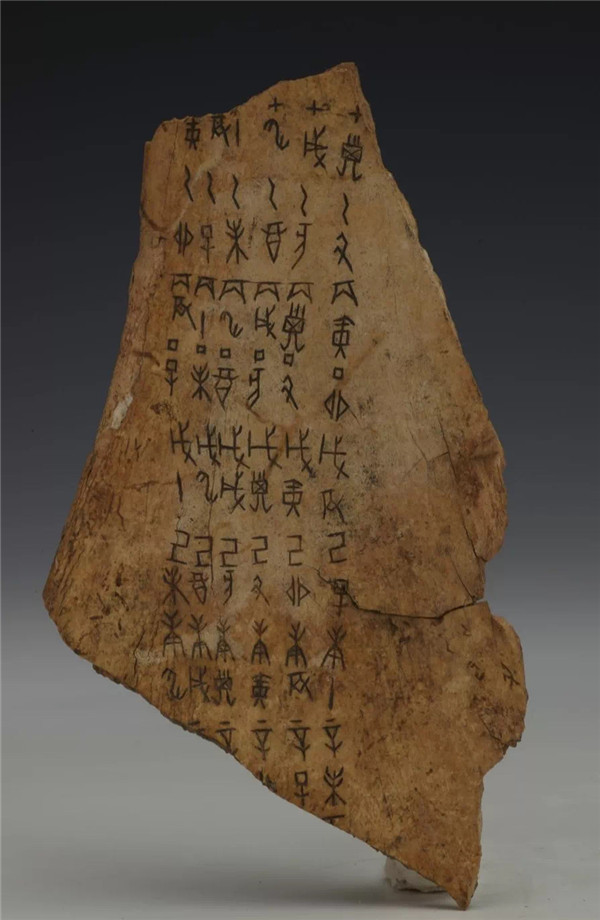 甲子乙丑丙寅丁卯戊辰己巳庚午辛未
甲戌乙亥丙子丁丑戊寅己卯庚辰辛巳
甲申乙酉丙戌丁亥戊子己丑庚寅辛
午乙未丙申丁酉戊戌己亥庚子辛
辰乙巳丙午丁未戊申己酉庚戌
寅乙卯丙辰丁巳戊午己未庚申